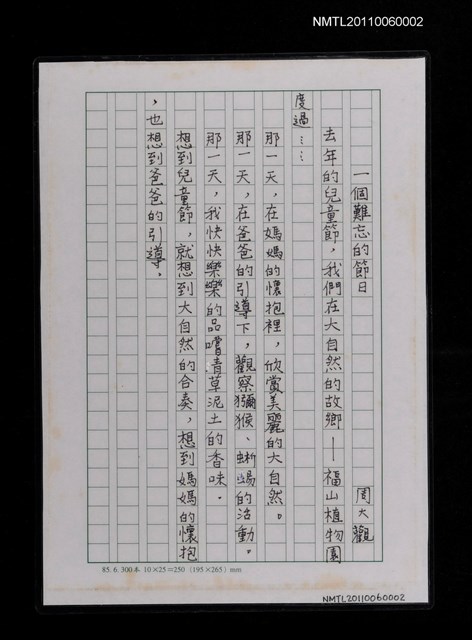 NMTL20110060002
一個難忘的節日
周大觀
去年的兒童節，我們在大自然的故鄉——福山植物園
度過……
那一天，在媽媽的懷抱裡，欣賞美麗的大自然。
那一天，在爸爸的引導下，觀察獼猴、蜥蜴的活動。
那一天，我快快樂樂的品嚐青草泥土的香味。
想到兒童節，就想到大自然的合奏，想到媽媽的懷抱
，也想到爸爸的引導。
85.6.300本 10×25=250 (195×265) mm
NMTL20110060002